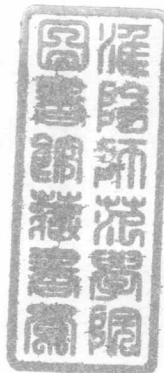 淮陰師范學院
圖書館藏書章